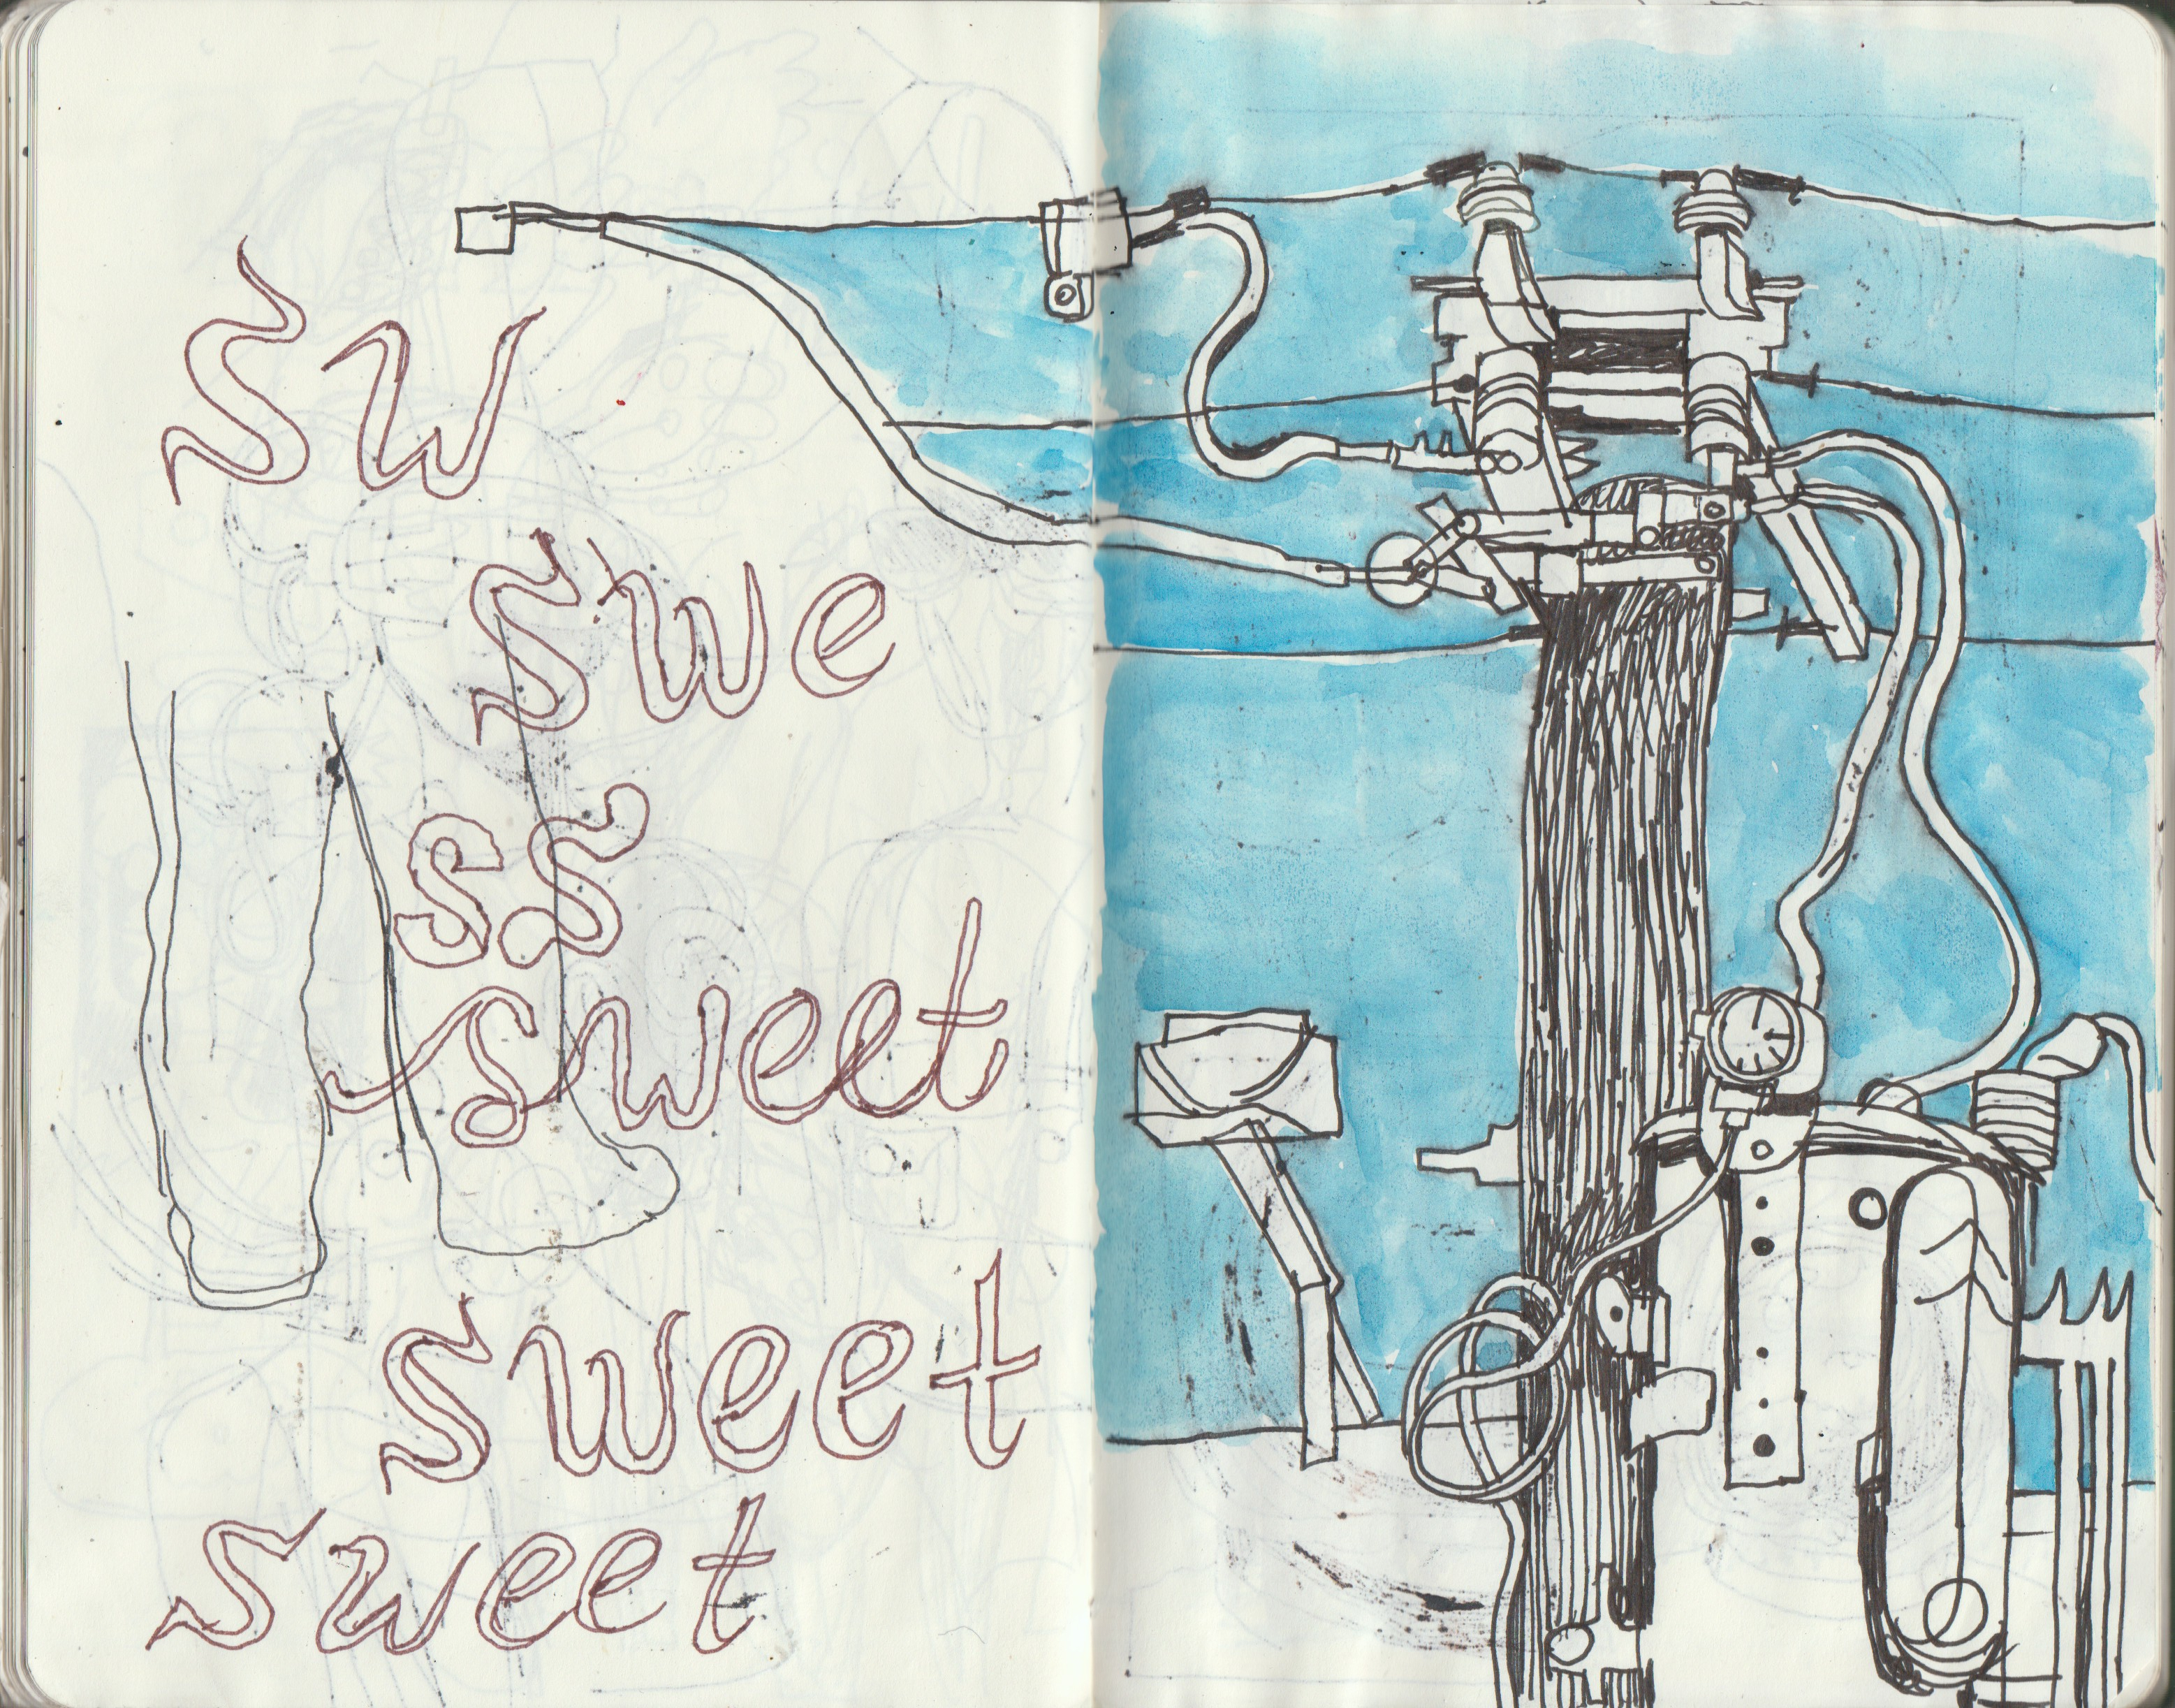 sw
swe
s s
sweet
sweet
sweet